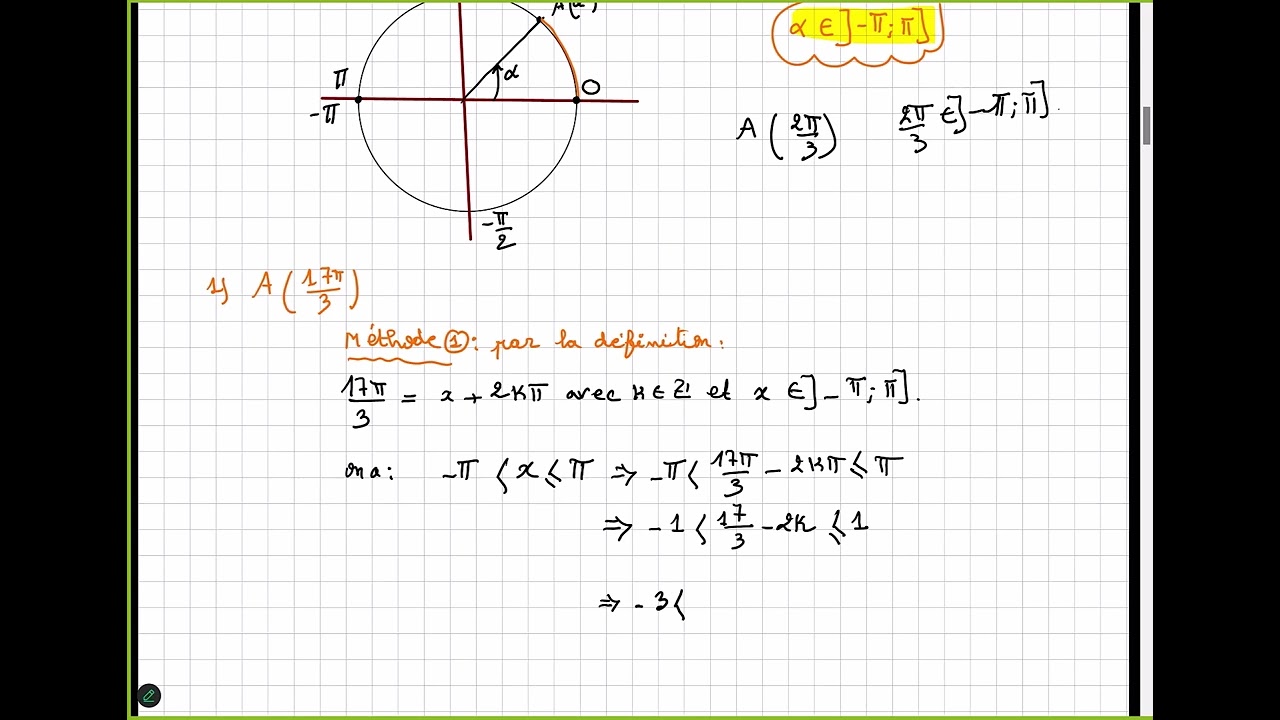 A(α)
α ∈ ]-π; π]
π
-π
α
O
A (2π/3) 2π/3 ∈ ]-π; π].
-π/2
1) A (17π/3)
Méthode ①: par la définition:
17π/3 = x + 2kπ avec k ∈ ℤ et x ∈ ]-π; π].
on a: -π < x ≤ π ⇒ -π < 17π/3 - 2kπ ≤ π
⇒ -1 < 17/3 - 2k ≤ 1
⇒ -3 <